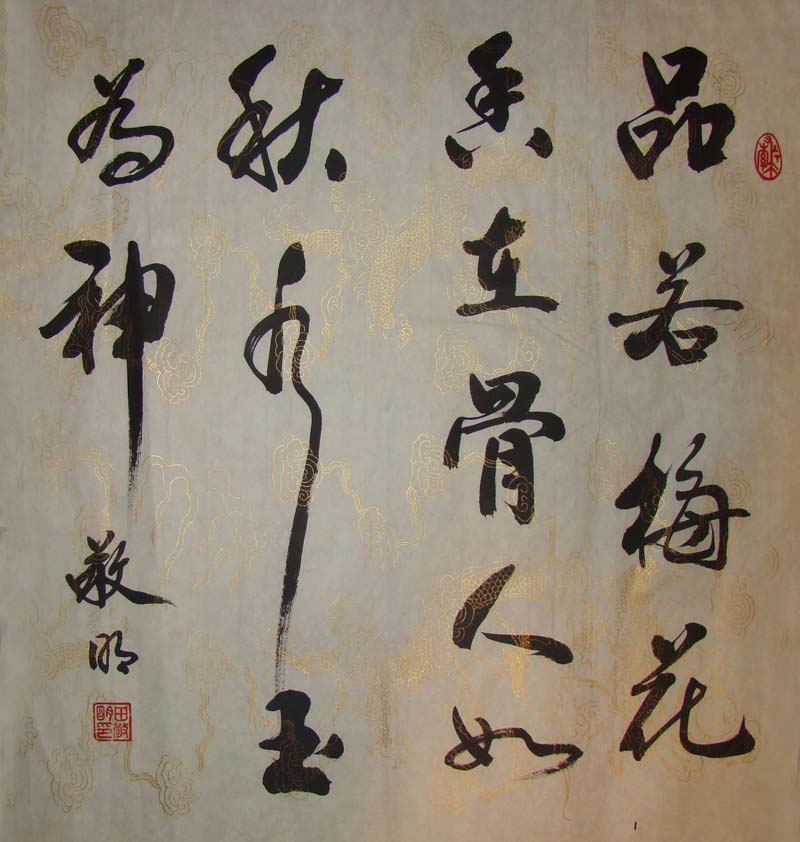 品若梅花
香在骨人如
秋水玉
为神
敬明
田敬明印